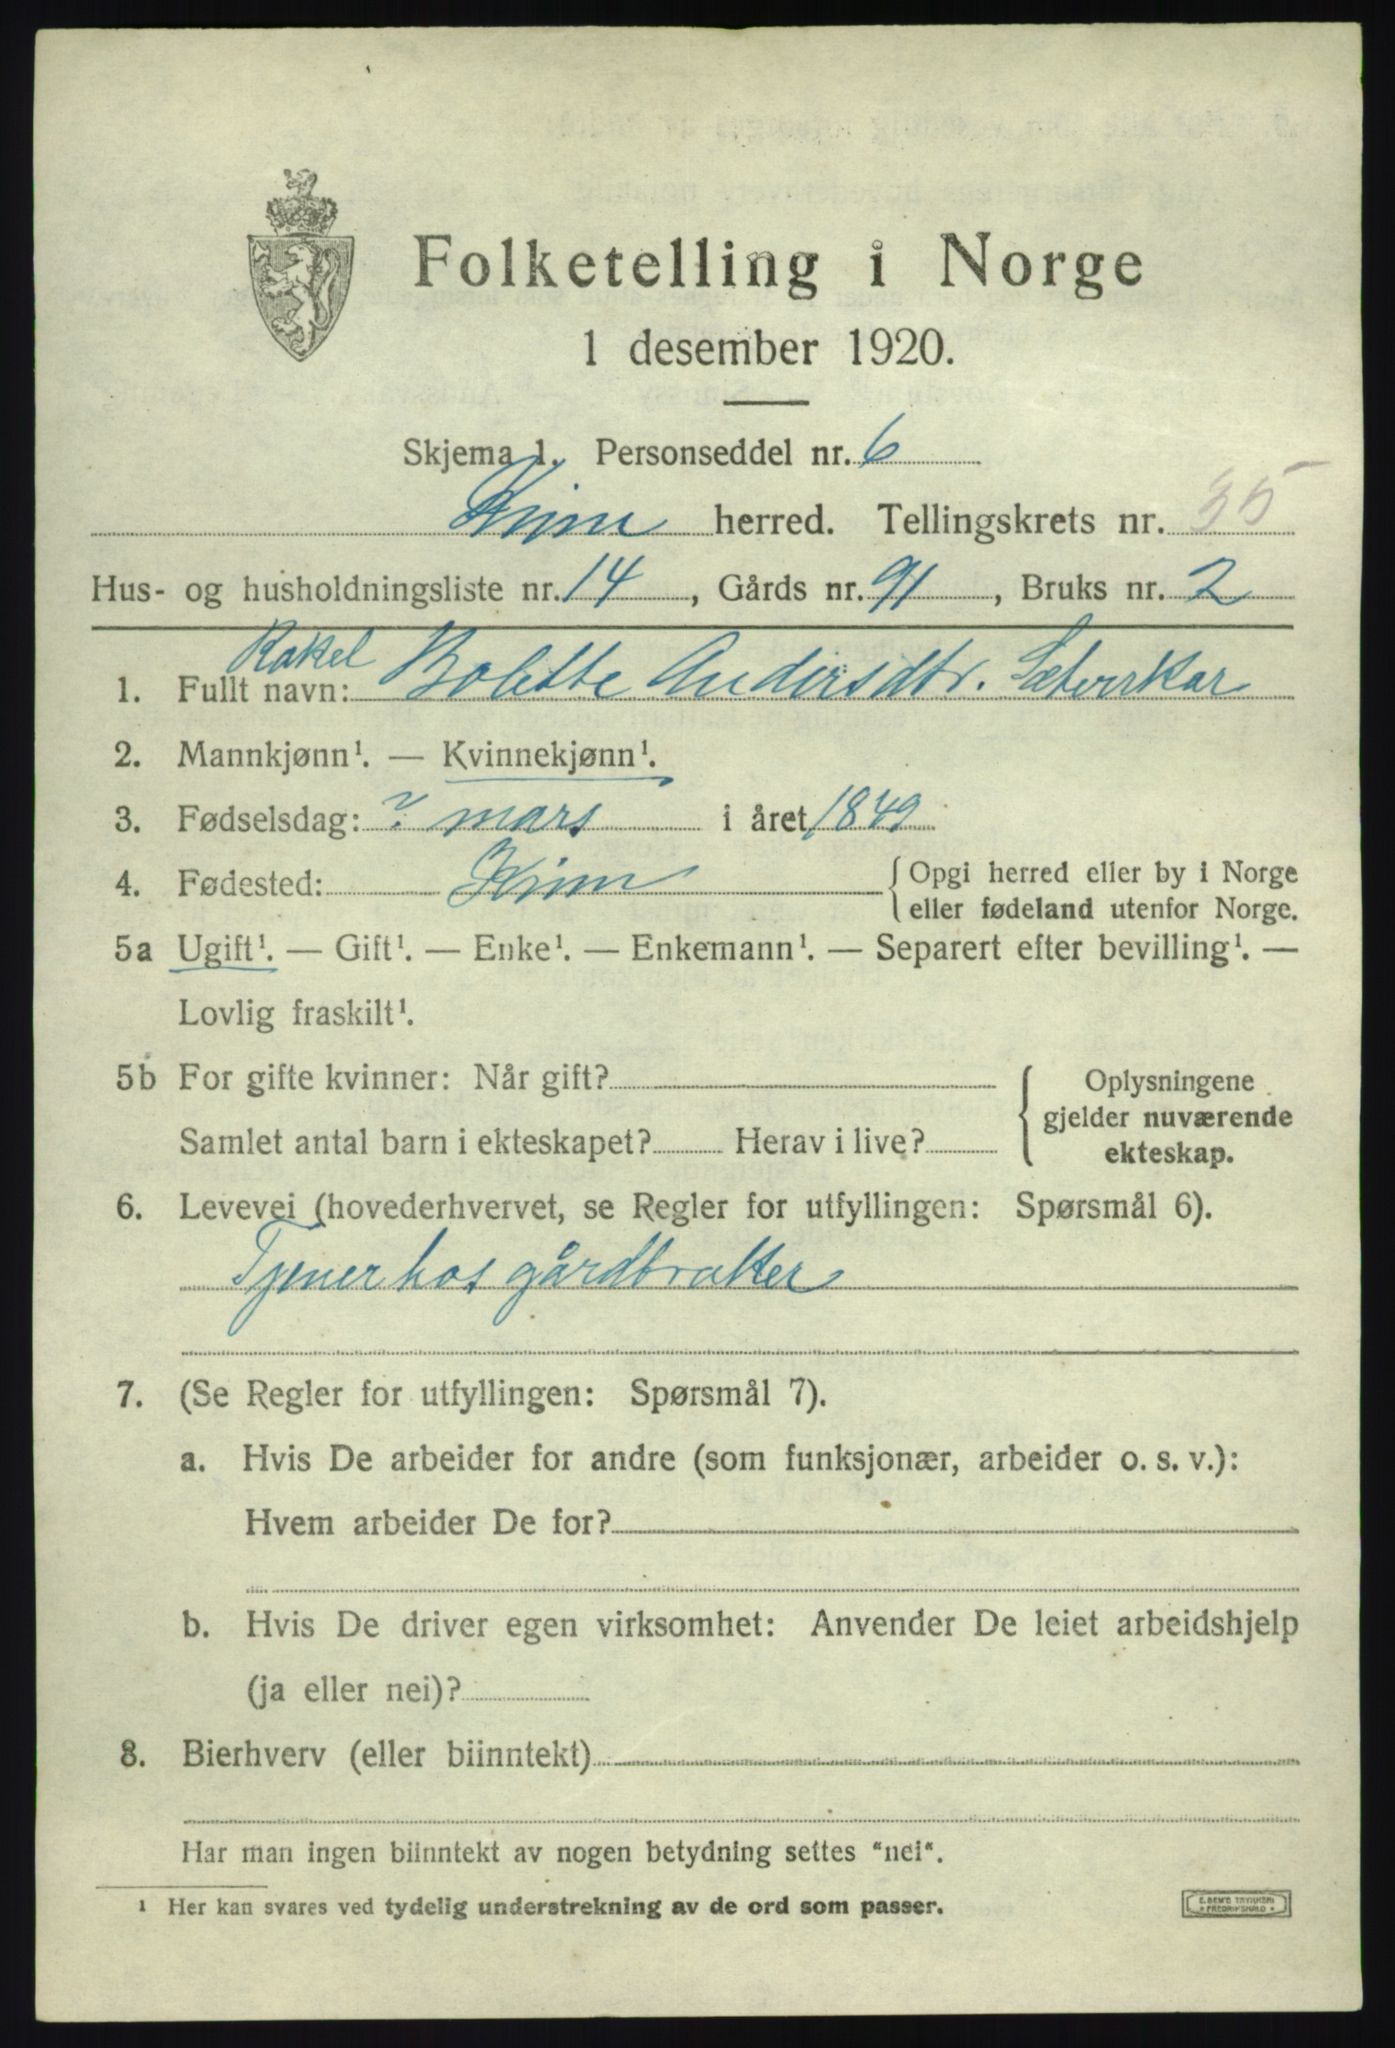 Folketelling i Norge
1 desember 1920.
Skjema 1. Personseddel nr. 6
Kinn herred. Tellingskrets nr. 35
Hus- og husholdningsliste nr. 14, Gårds nr. 91, Bruks nr. 2
Rakel
1. Fullt navn: Bolette Andersdtr. Sæterskar
2. Mannkjønn¹. — Kvinnekjønn¹.
3. Fødselsdag: ? mars i året 1849
4. Fødested: Kinn {Opgi herred eller by i Norge
eller fødeland utenfor Norge.
5a Ugift¹. — Gift¹. — Enke¹. — Enkemann¹. — Separert efter bevilling¹. —
Lovlig fraskilt¹.
5b For gifte kvinner: Når gift?
Samlet antal barn i ekteskapet? Herav i live?
{Oplysningene
gjelder nuværende
ekteskap.
6. Levevei (hovederhvervet, se Regler for utfyllingen: Spørsmål 6).
Tjener hos gårdbruker
7. (Se Regler for utfyllingen: Spørsmål 7).
a. Hvis De arbeider for andre (som funksjonær, arbeider o. s. v.):
Hvem arbeider De for?
b. Hvis De driver egen virksomhet: Anvender De leiet arbeidshjelp
(ja eller nei)?
8. Bierhverv (eller biinntekt)
Har man ingen biinntekt av nogen betydning settes "nei".
¹ Her kan svares ved tydelig understrekning av de ord som passer.
E. SEM'S TRYKKERI
FREDRIKSHALD